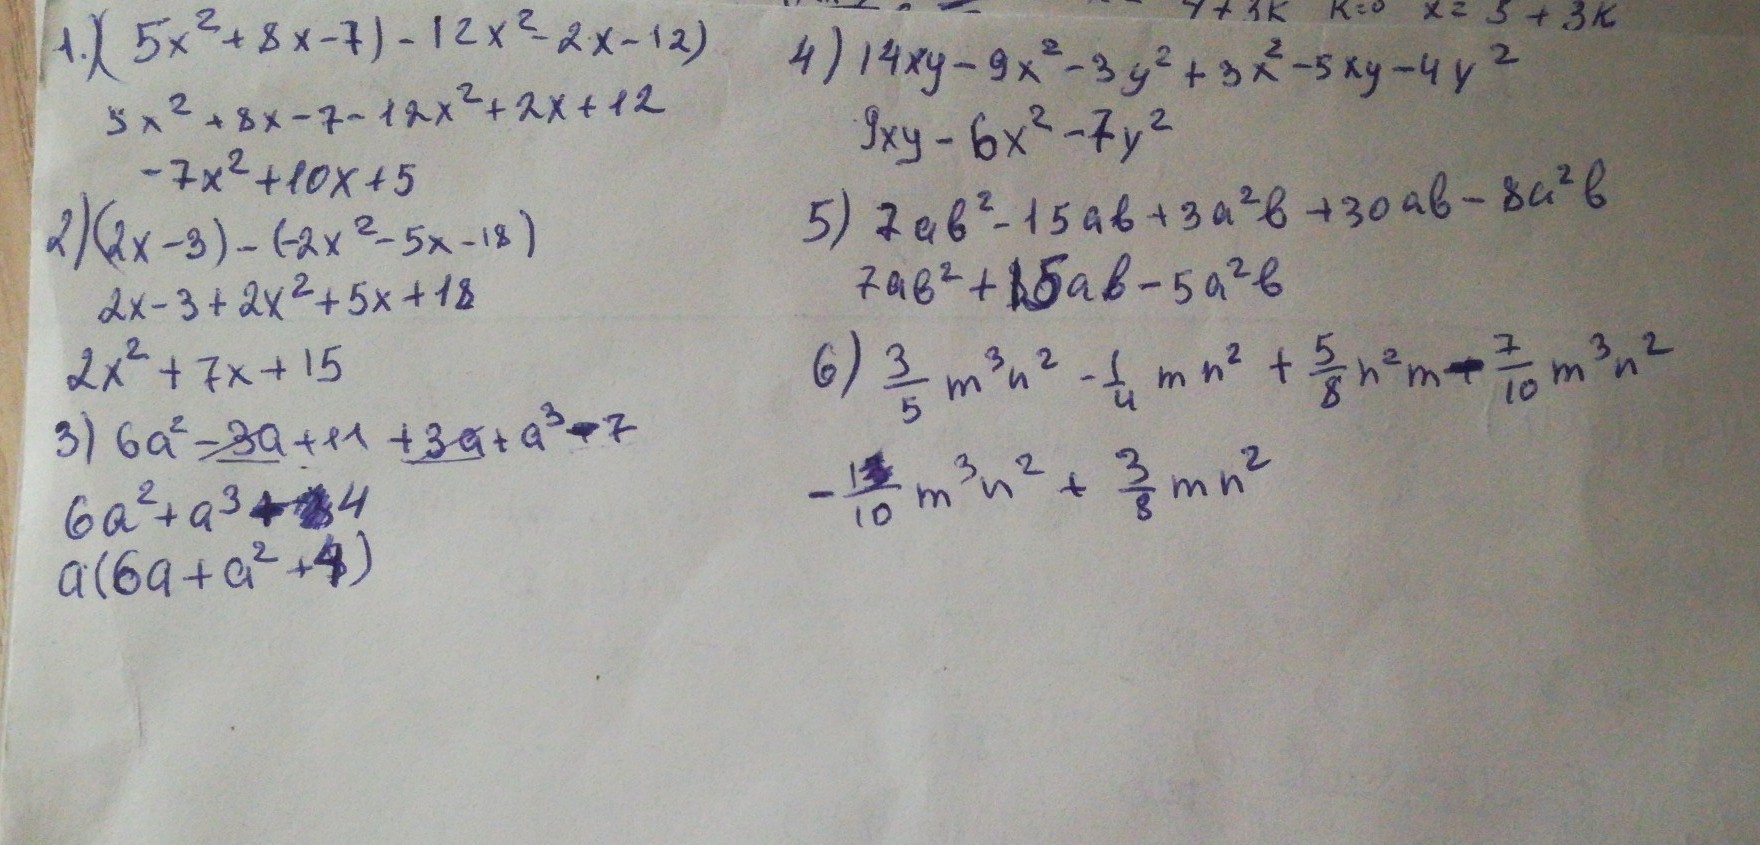 4 + 3k k=0 x= 5 + 3k
1.) (5x² + 8x - 7) - 12x² - 2x - 12)
5x² + 8x - 7 - 12x² + 2x + 12
-7x² + 10x + 5
2) (2x - 3) - (-2x² - 5x - 18)
2x - 3 + 2x² + 5x + 18
2x² + 7x + 15
3) 6a² - 3a + 11 + 3a + a³ - 7
6a² + a³ + 4
a(6a + a² + 4)
4) 14xy - 9x² - 3y² + 3x² - 5xy - 4y²
9xy - 6x² - 7y²
5) 7ab² - 15ab + 3a²b + 30ab - 8a²b
7ab² + 15ab - 5a²b
6) 3/5 m³n² - 1/4 mn² + 5/8 n²m - 7/10 m³n²
- 1/10 m³n² + 3/8 mn²